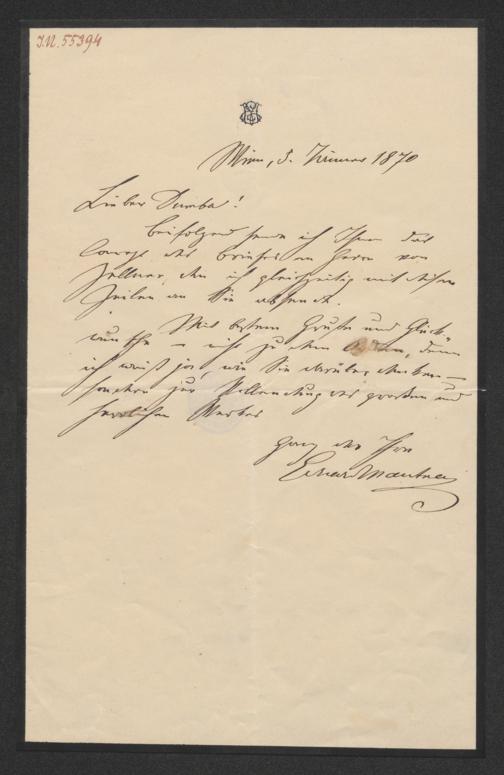 J.N. 55394
Wien, 5. Jänner 1870
Lieber Dumba!
Beifolgend sende ich Ihnen das
des Briefes an Herrn von
Zellner, den ich gleichzeitig mit diesen
Zeilen an Sie absende.
Mit bestem Gruße und Glück-
wunsche – nicht zu dem Orden, denn
ich weiß ja, wie Sie darüber denken –
sondern zur Vollendung des großen und
herrlichen Werkes
ganz der Ihre
Eduard Mautner